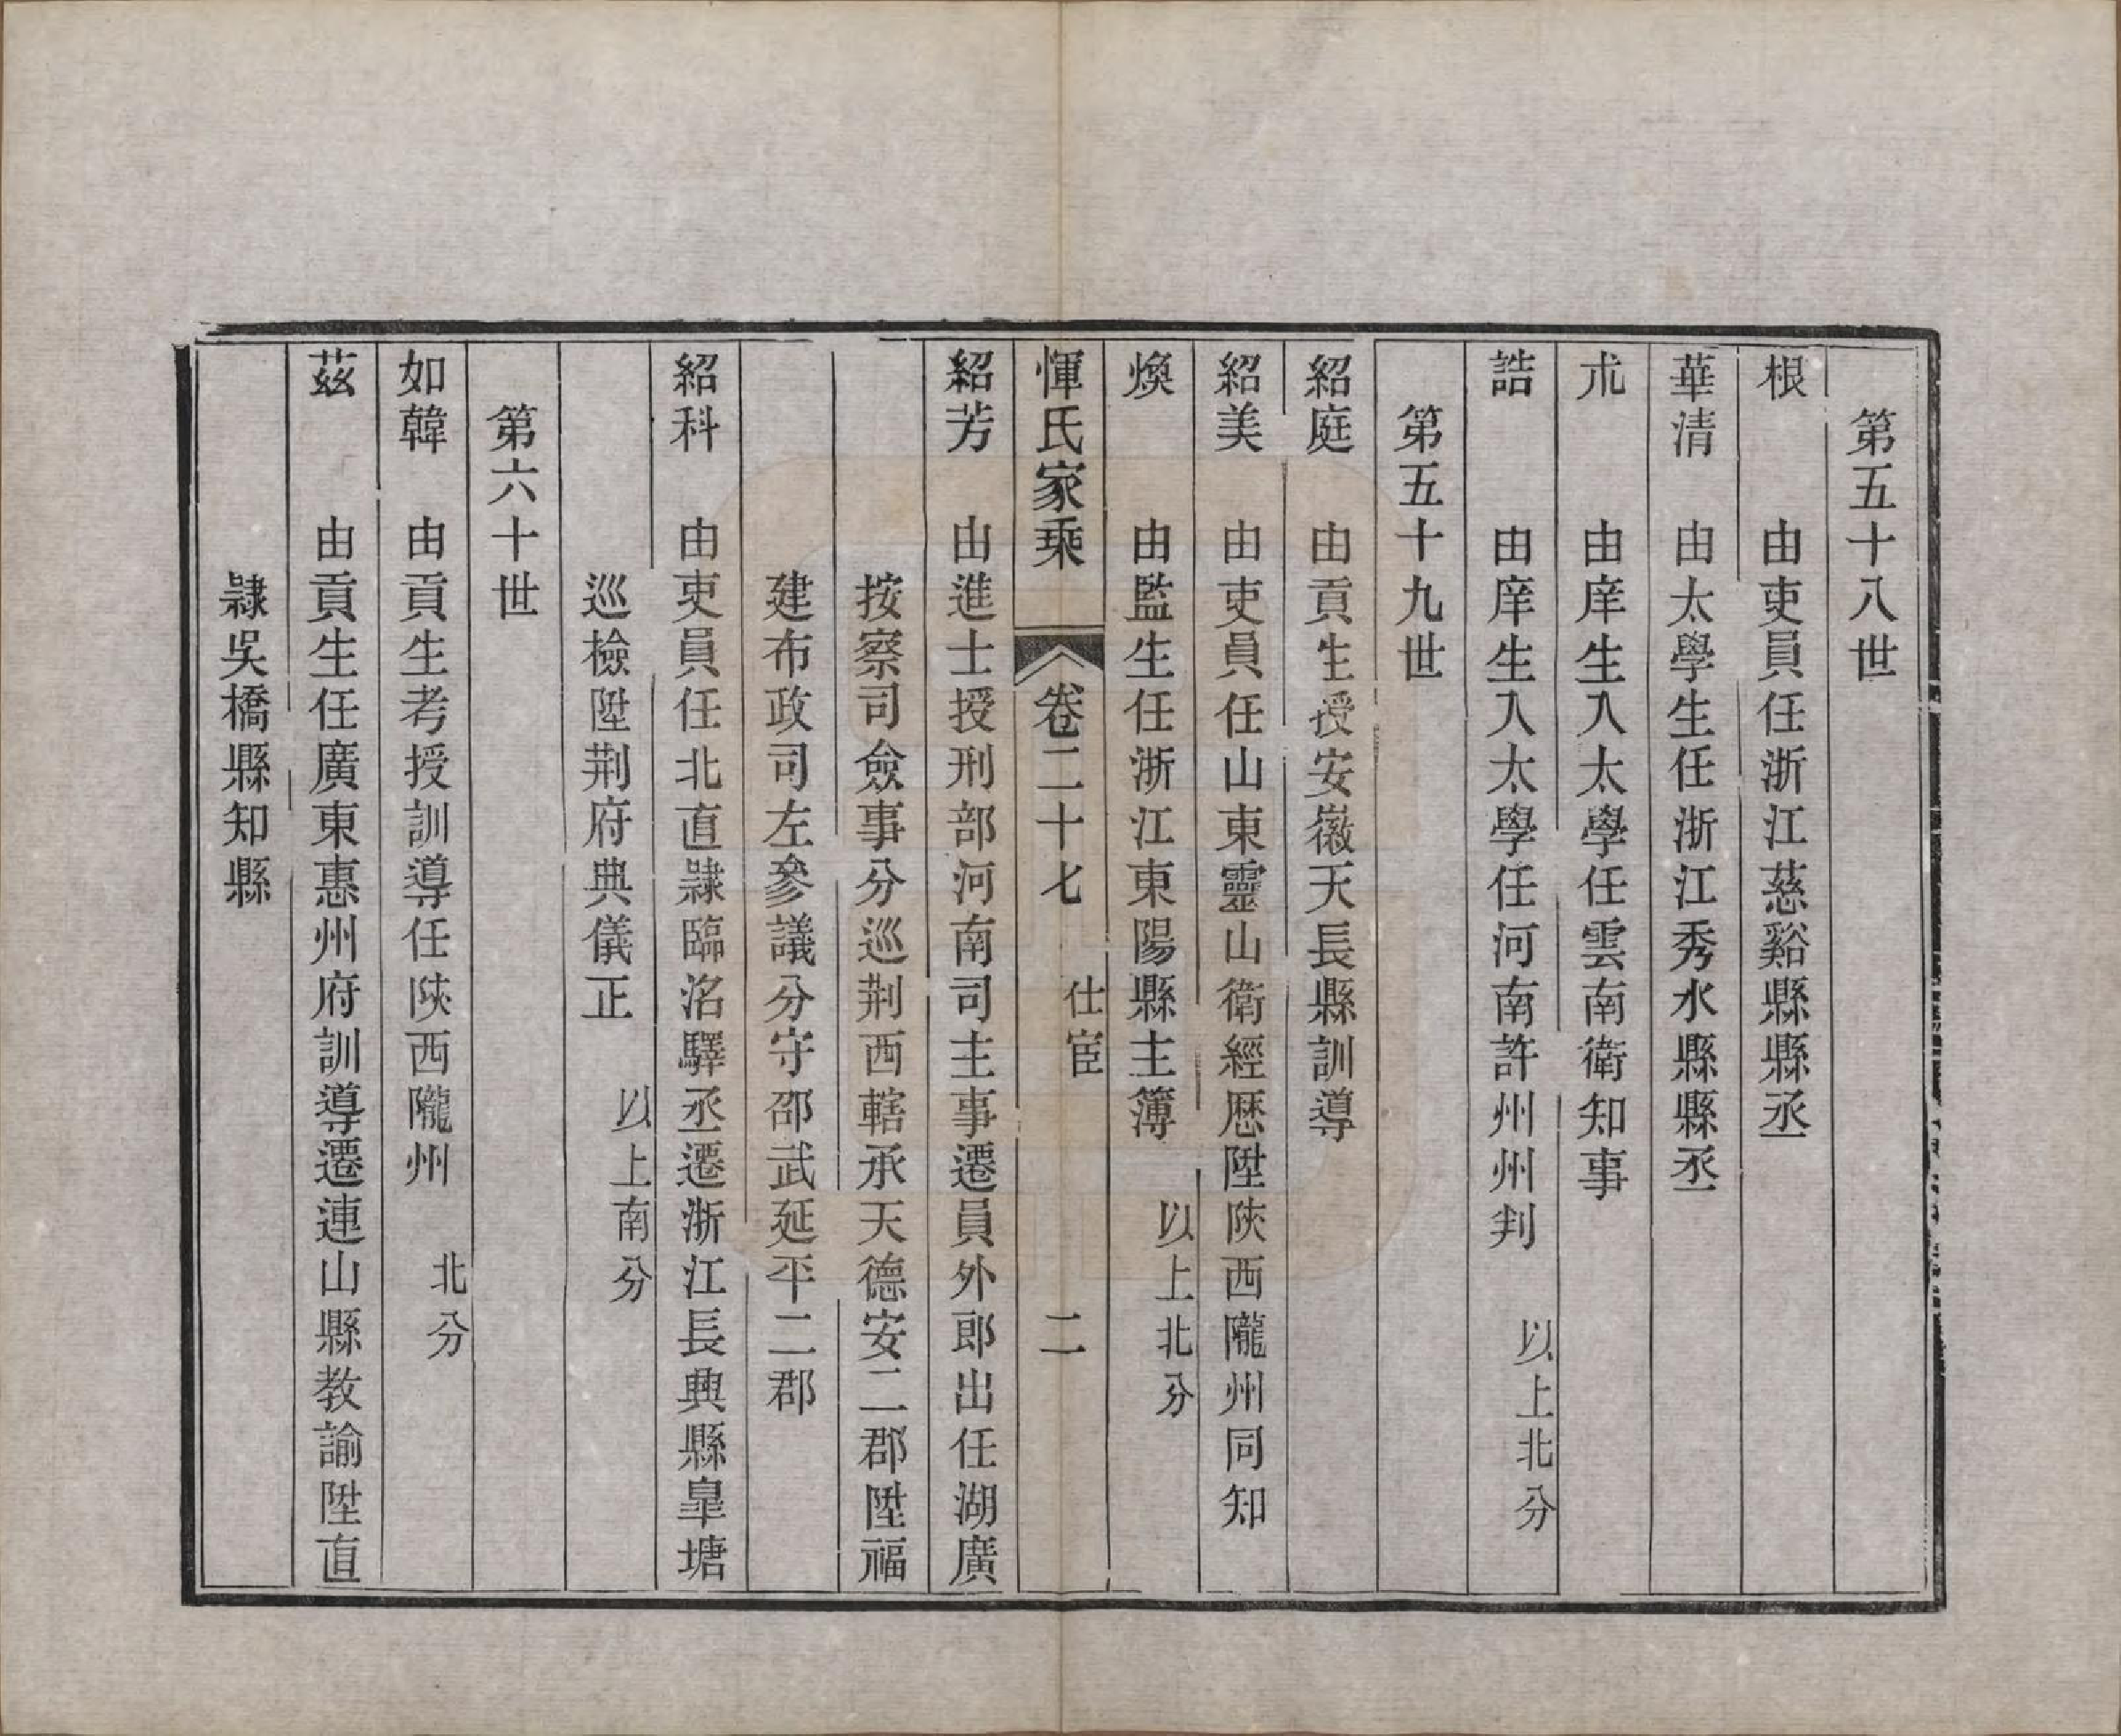 第五十八世
根　由吏員任浙江慈谿縣縣丞
華清　由太學生任浙江秀水縣縣丞
朮　由庠生入太學任雲南衛知事
誥　由庠生入太學任河南許州州判　以上北分
第五十九世
紹庭　由貢生授安徽天長縣訓導
紹美　由吏員任山東靈山衛經歷陞陝西隴州同知
煥　由監生任浙江東陽縣主簿　以上北分
惲氏家乘　卷二十七　仕宦　二
紹芳　由進士授刑部河南司主事遷員外郎出任湖廣
按察司僉事分巡荆西轄承天德安二郡陞福
建布政司左參議分守邵武延平二郡
紹科　由吏員任北直隸臨洺驛丞遷浙江長興縣臯塘
巡檢陞荆府典儀正　以上南分
第六十世
如韓　由貢生考授訓導任陝西隴州　北分
茲　由貢生任廣東惠州府訓導遷連山縣教諭陞直
隸吳橋縣知縣